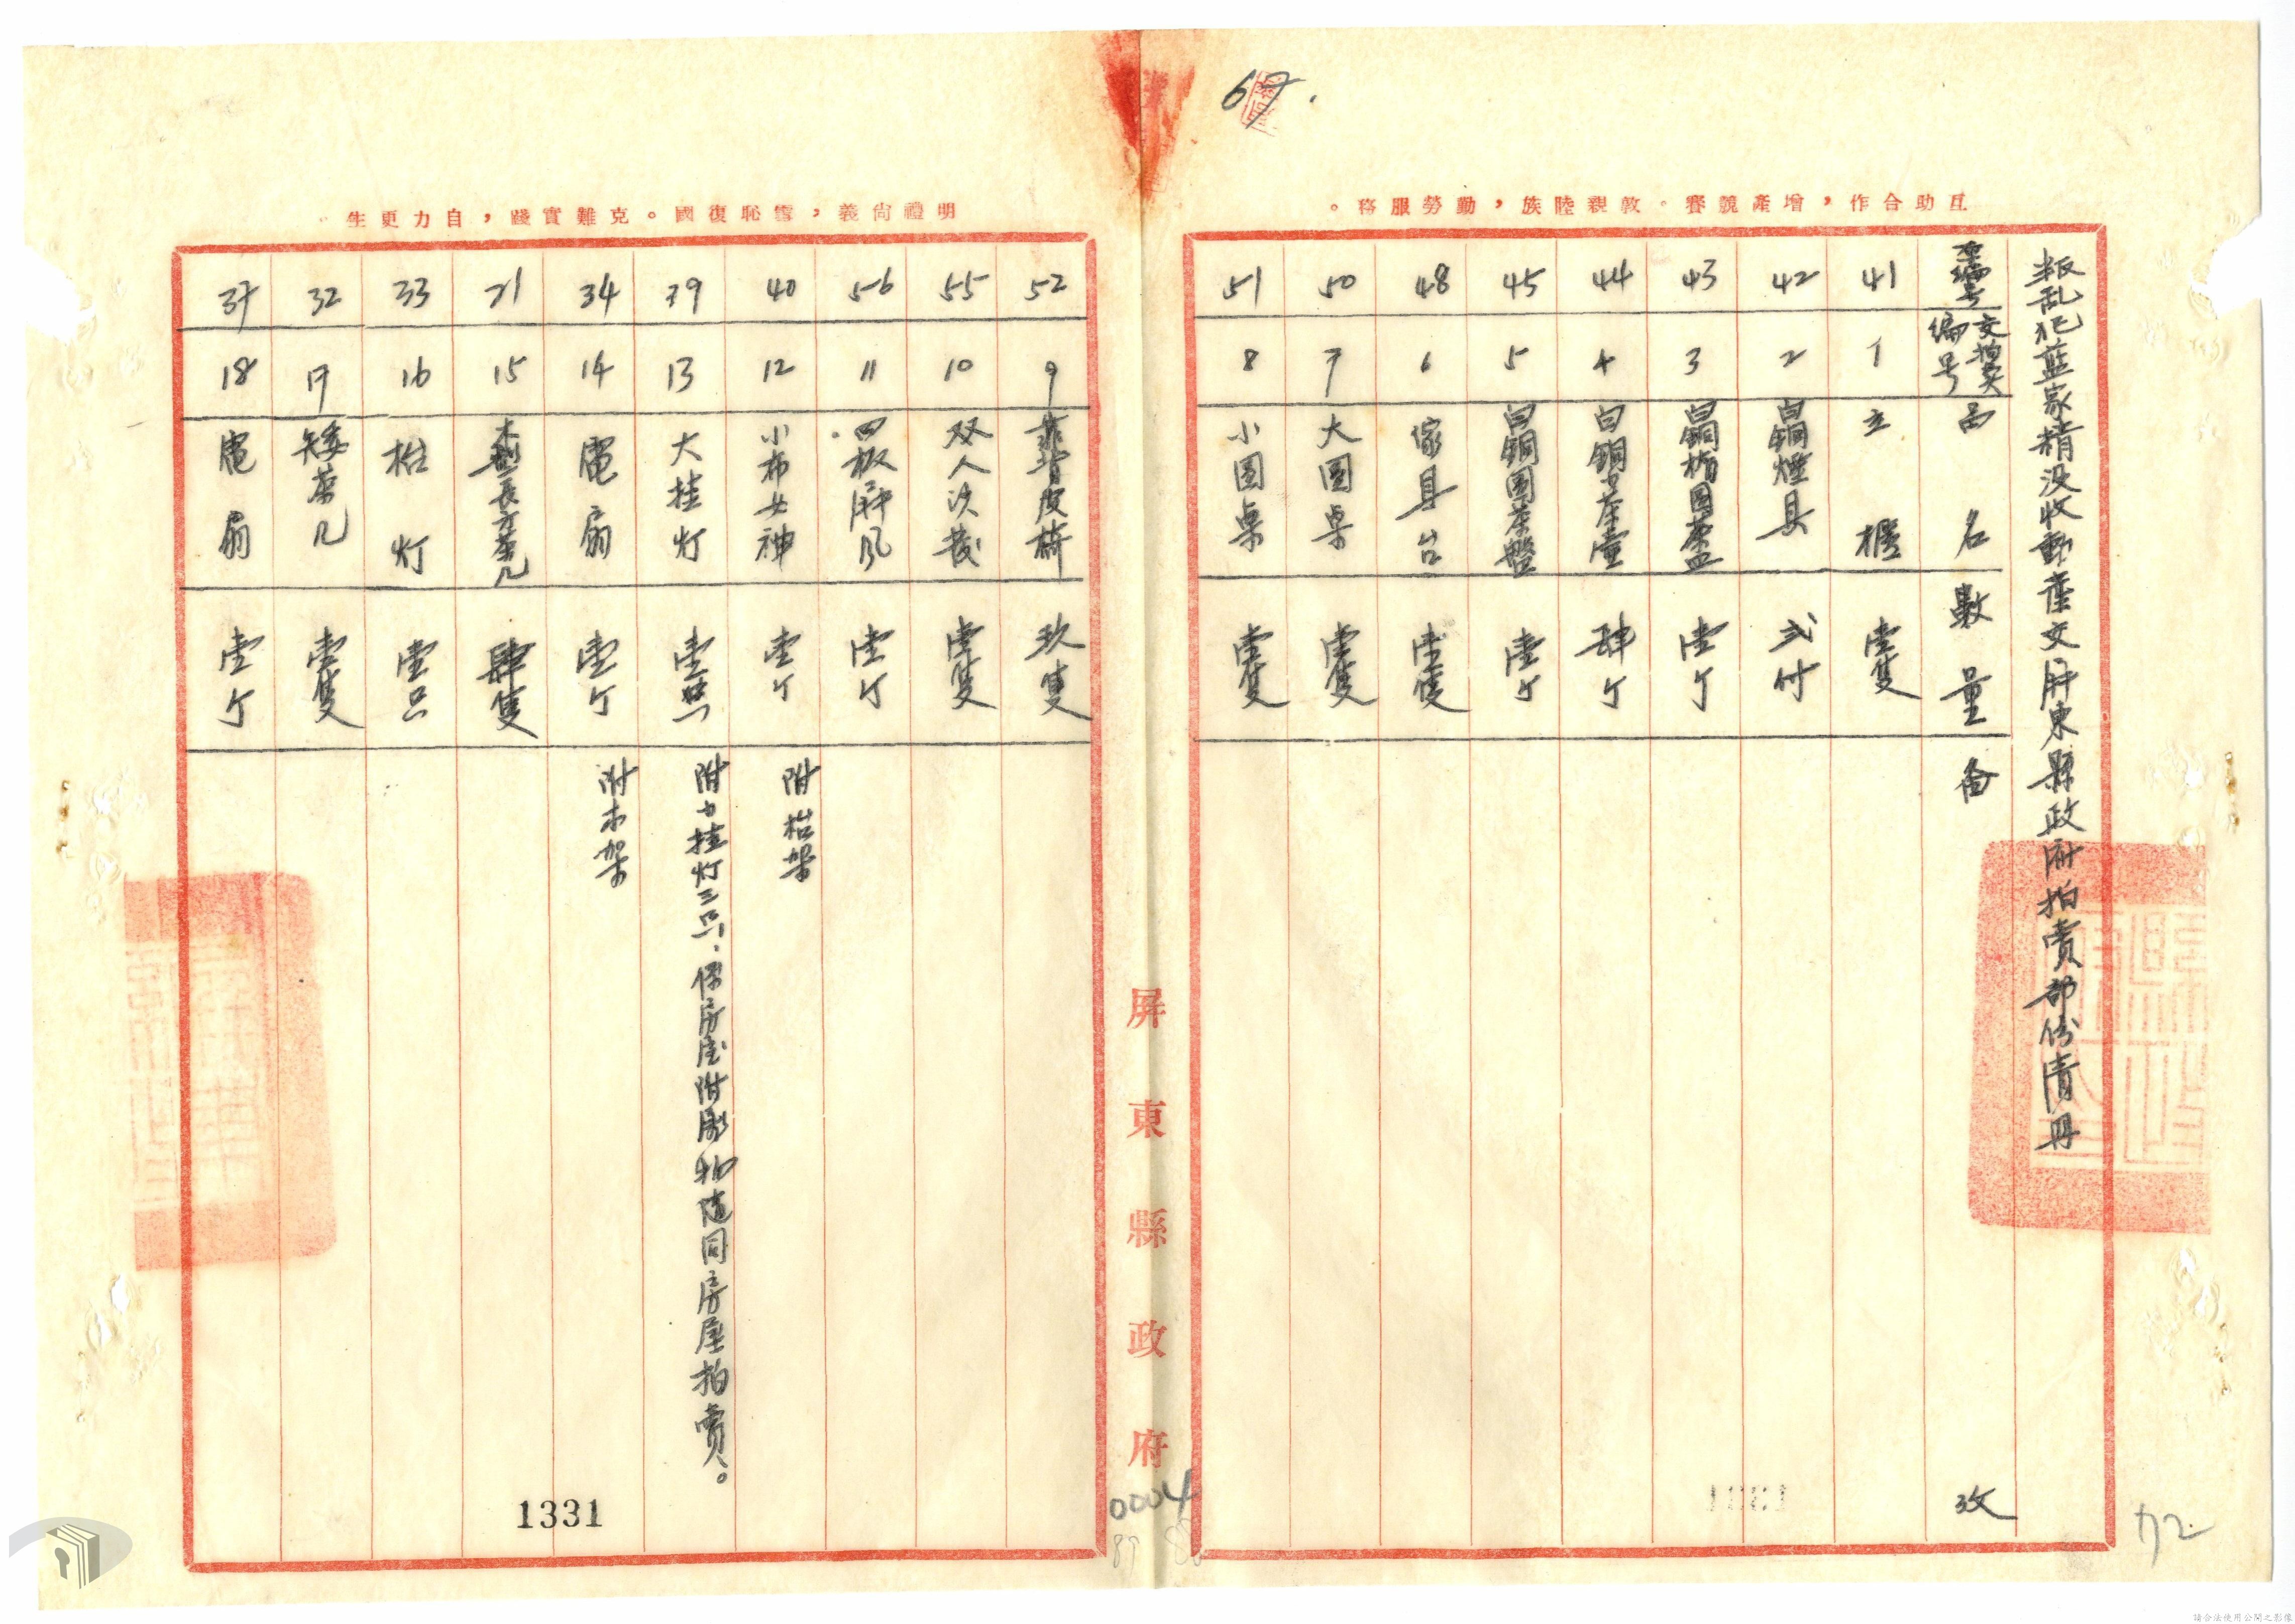 67.
互助合作，增產競賽。敦親睦族，勤勞服務。
叛乱犯藍家精没收動產交屏東縣政府拍賣部份清冊
編号 交拍賣編号 品名 數量 備攷
41 1 立櫃 壹隻
42 2 白銅煙具 弍付
43 3 白銅楕圓茶盤 壹个
44 4 白銅茶壷 肆个
45 5 白銅圓茶盤 壹个
48 6 傢具台 壹隻
50 7 大圓桌 壹隻
51 8 小圓桌 壹隻
屏東縣政府
0004
明禮尚義，雪恥復國。克難實踐，自力更生。
52 9 靠背皮椅 玖隻
55 10 双人沙發 壹隻
56 11 四板屏风 壹个
40 12 小布女神 壹个 附枱架
39 13 大挂灯 壹 附小挂灯三只，係房屋附彫物隨同房屋拍賣。
34 14 電扇 壹个 附木架
31 15 木制長方茶几 肆隻
33 16 枱灯 壹只
32 17 矮茶几 壹隻
37 18 電扇 壹个
1331
請合法使用公開之影像